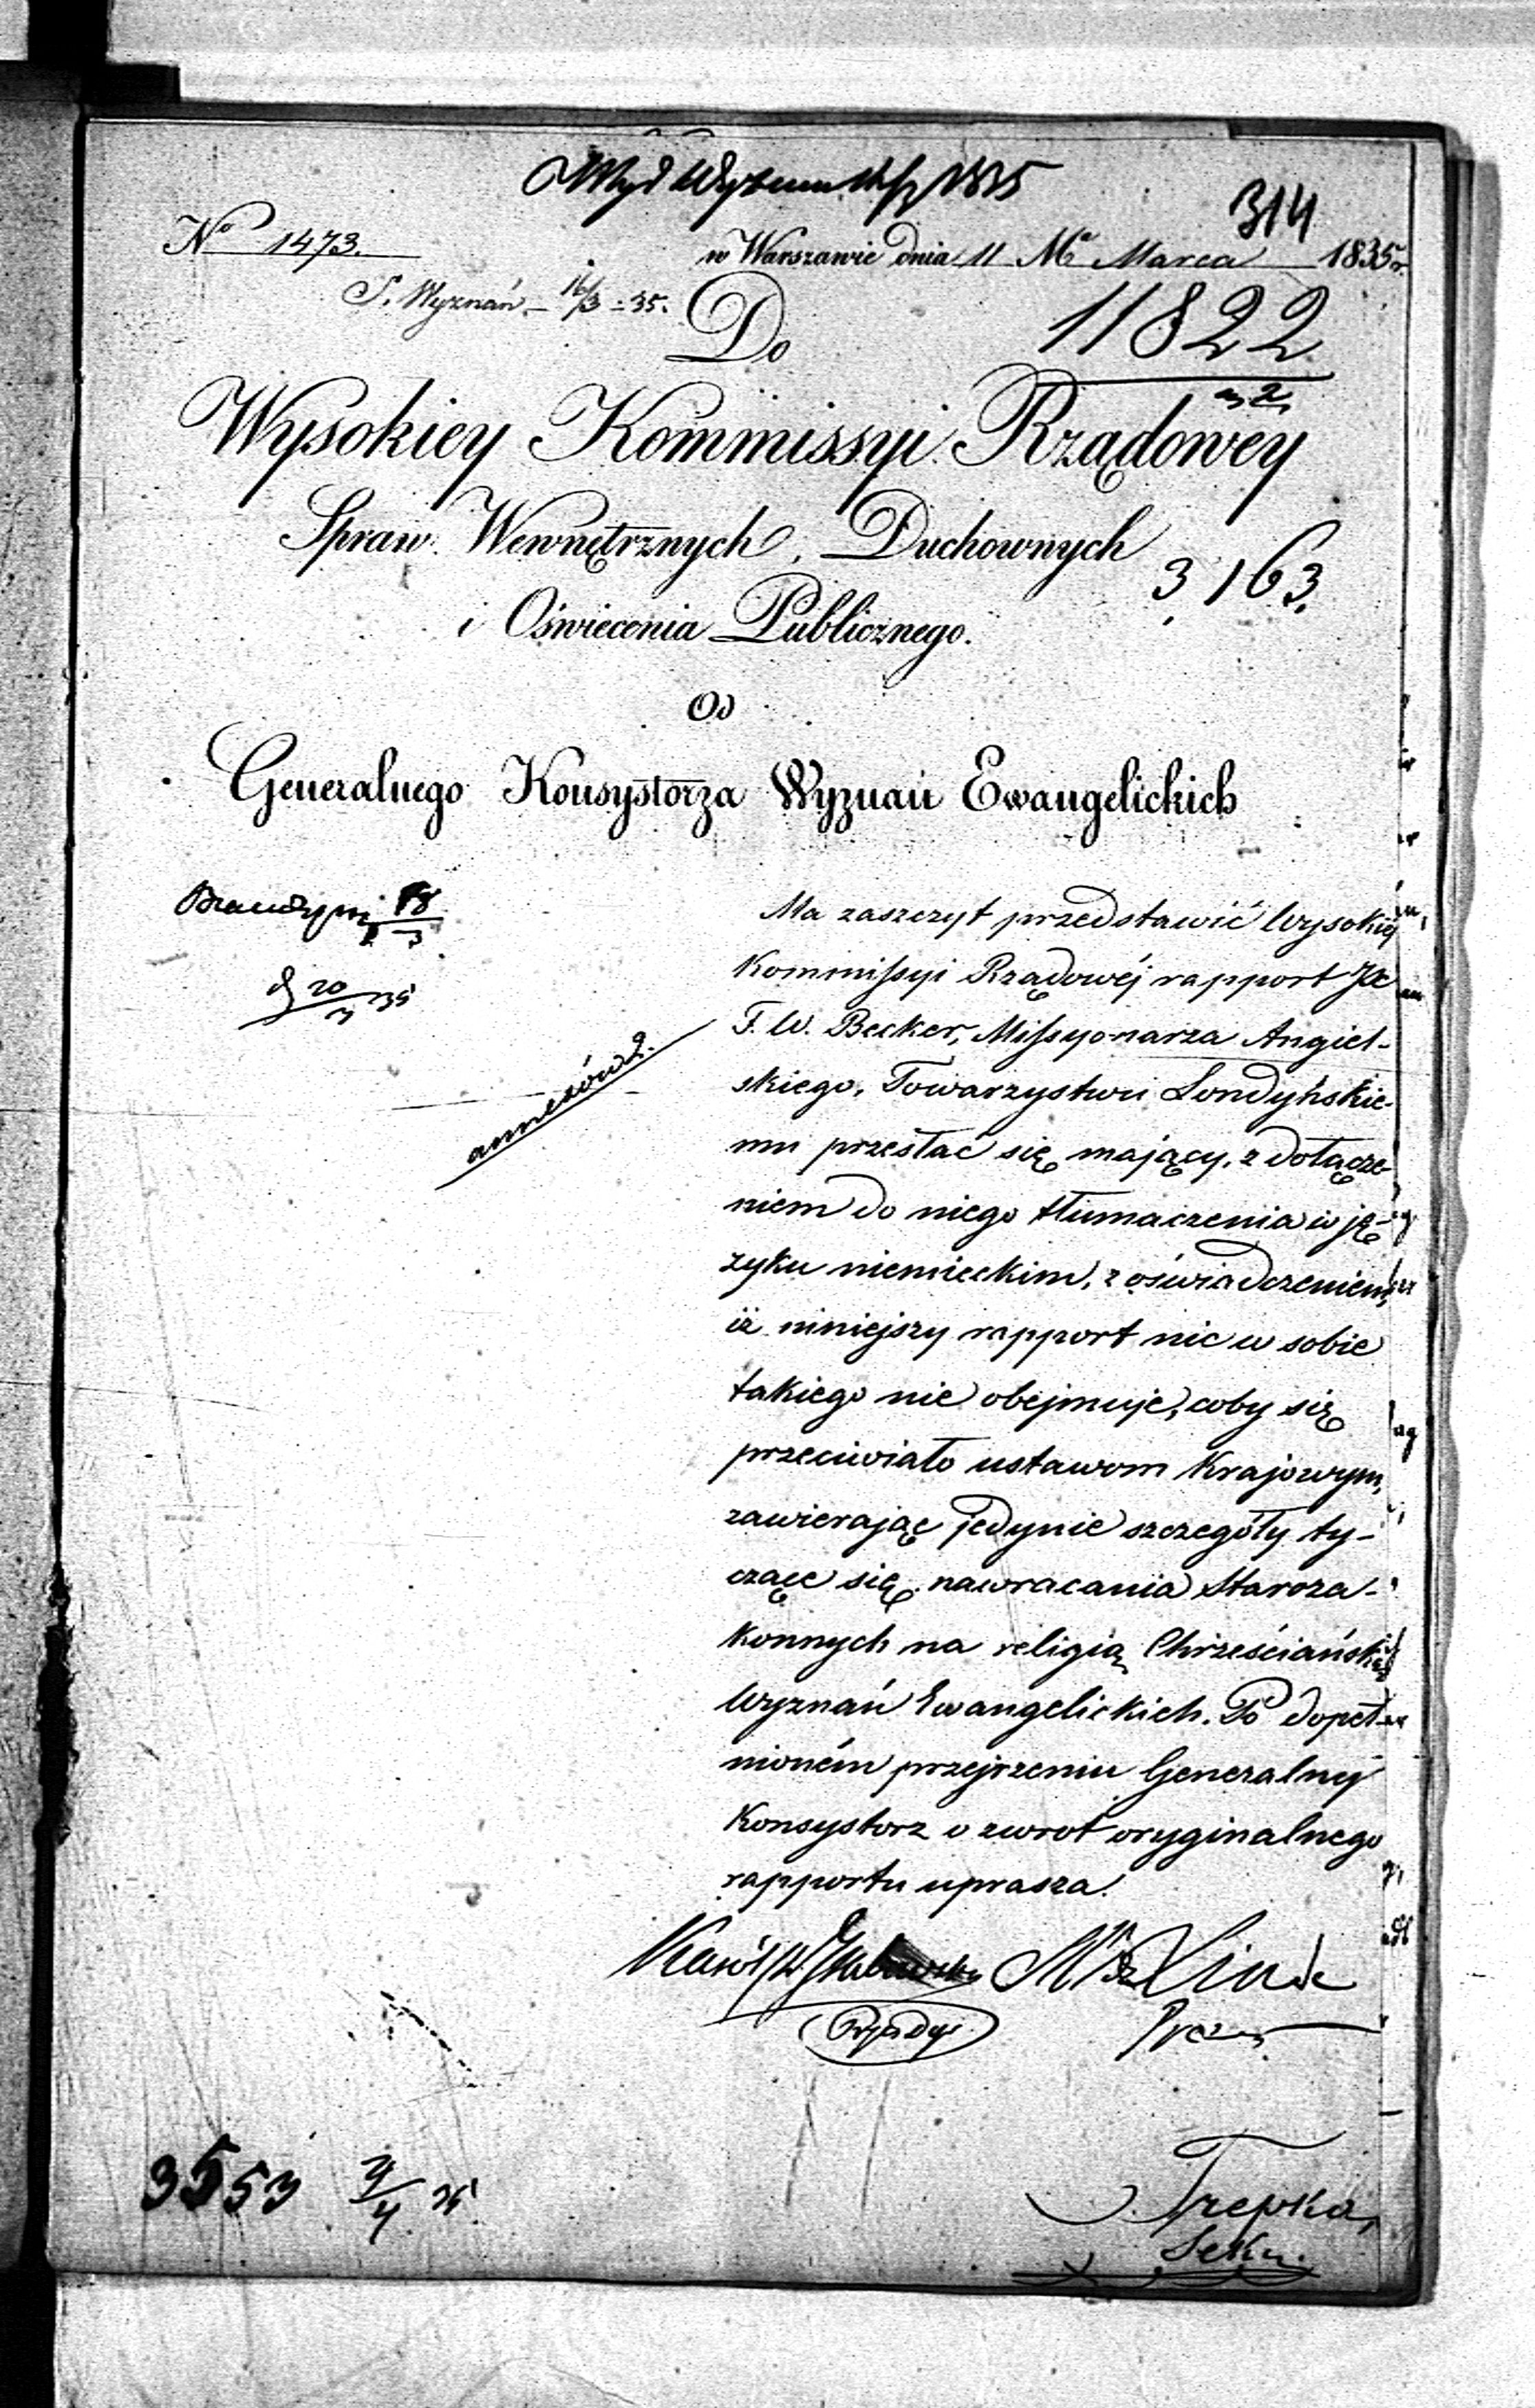 1835
314
No 1473.
w Warszawie dnia 11 Ma Marca 1835 r.
S. Wyznań. 16/3 - 35.
Do
11822
Wysokiey Kommissyi Rządowey
Spraw Wewnętrznych, Duchownych
3163.
i Oświecenia Publicznego.
Od
Generalnego Konsystorza Wyznań Ewangelickich
18/3
20/3 35
annexów 2.
Ma zaszczyt przedstawić Wysokiéj
Kommissyi Rządowéj rapport
F. W. Becker, Missyonarza Angiel-
skiego, Towarzystwu Londyńskie-
mu przesłać się mający, z dołącze-
niem do niego tłumaczenia w ję-
zyku niemieckim, z oświadczeniem,
iż niniejszy rapport nic w sobie
takiego nie obejmuje, coby się
przeciwiało ustawom Krajowym,
zawierając jedynie szczegóły ty-
czące się nawracania Staroza-
konnych na religią Chrześciańską
Wyznań Ewangelickich. Po dopeł-
nioném przejrzeniu Generalny
Konsystorz o zwrot oryginalnego
rapportu uprasza.
Linde
Prezes
Trepka,
Sekr.
3553 4 35